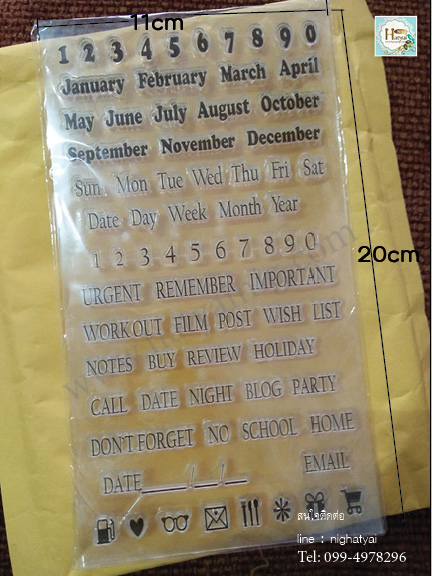 11cm
Hatyai
1 2 3 4 5 6 7 8 9 0
January February March April
May June July August October
September November December
Sun Mon Tue Wed Thu Fri Sat
Date Day Week Month Year
1 2 3 4 5 6 7 8 9 0
20cm
URGENT REMEMBER IMPORTANT
WORKOUT FILM POST WISH LIST
NOTES BUY REVIEW HOLIDAY
CALL DATE NIGHT BLOG PARTY
DON'T FORGET NO SCHOOL HOME
DATE___/___/___ EMAIL
สนใจติดต่อ
line : nighatyai
Tel: 099-4978296